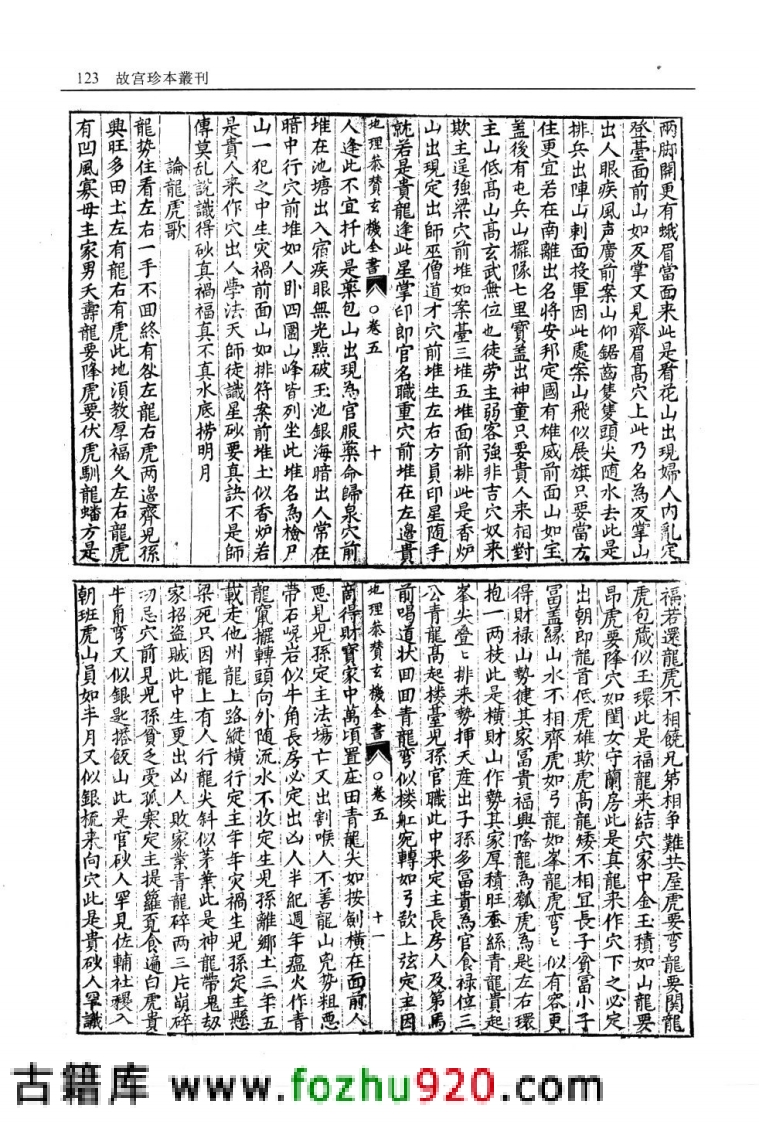 123 故宫珍本叢刊
兩脚開更有蛾眉當面来此是看花山出現婦人内亂定
登臺面前山如反掌又見齊眉髙穴上此乃名為反掌山
出人眼疾風声廣前案山仰鋸齒隻隻頭尖随水去此是
排兵出陣山刺面投軍因此處案山飛似展旗只要當方
住更宜若在南離出名將安邦定國有雄威前面山如宝
盖後有屯兵山擺隊七里寶盖出神童只要貴人来相對
主山低髙山髙玄武無位也徒劳主弱客強非吉穴奴来
欺主逞強梁穴前堆如案臺三堆五堆面前排此是香炉
山出現定出師巫僧道才穴前堆生左右方員印星随手
就若是貴龍逢此星掌印郎官名職重穴前堆在左邊貴
地理叅賛玄機全書 ○卷五 十
人逢此不宜扦此是藥包山出現為官服藥命歸泉穴前
堆在池塘出入宿疾眼無光點破玉池銀海暗出人常在
暗中行穴前堆如人卧四圍山峰皆列坐此堆名為檢尸
山一犯之中生灾禍前面山如排符案前堆土似香炉若
是貴人来作穴出人學法天師徒識星砂要真訣不是師
傳莫乱説識得砂真禍福真不真水底撈明月
論龍虎歌
龍势住看左右一手不囬終有咎左龍右虎两邉齊児孫
興旺多田土左有龍右有虎此地須教厚福久左右龍虎
有凹風寡母主家男夭壽龍要降虎要伏虎馴龍蟠方是
福若還龍虎不相饒兄弟相争難共屋虎要弯龍要関龍
虎包藏似玉環此是福龍来結穴家中金玉積如山龍要
昂虎要降穴如閨女守蘭房此是真龍来作穴下之必定
出朝郎龍首低虎雄欺虎髙龍矮不相宜長子貧冨小子
冨盖縁山水不相齊虎如弓龍如峯龍虎弯弯似有容更
得財禄山勢健其家冨貴福興隆龍為瓢虎為匙左右環
抱一兩枝此是横財山作勢其家厚積旺蚕絲青龍貴起
峯尖叠叠排来勢挿天産出子孫多冨貴為官食禄位三
公青龍髙起楼臺児孫官職此中来定主長房人及第馬
前喝道状囬囬青龍弯似楼舡宛轉如弓欲上弦定主因
地理叅賛玄機全書 ○卷五 十一
商得財寳家中萬頃置庄田青龍尖如按劍横在面前人
悪見児孫定主法塲亡又出割喉人不善龍山兇势粗悪
帶石峴岩似牛角長房必定出凶人半紀週年瘟火作青
龍竄擺轉頭向外随流水不收定生児孫離郷土三年五
載走他州龍上路縱横行定主年年灾禍生児孫定主懸
梁死只因龍上有人行龍尖斜似茅業此是神龍帶鬼劫
家招盗贼此中生更出凶人敗家業青龍碎两三片崩碎
切忌穴前見児孫貧乏受孤寒定主提籮覓食遍白虎貴
牛角弯又似銀匙搭飯山此是官砂人罕見佐輔社稷入
朝班虎山員如半月又似銀梳来向穴此是貴砂人罕識
古籍库 www.fozhu920.com